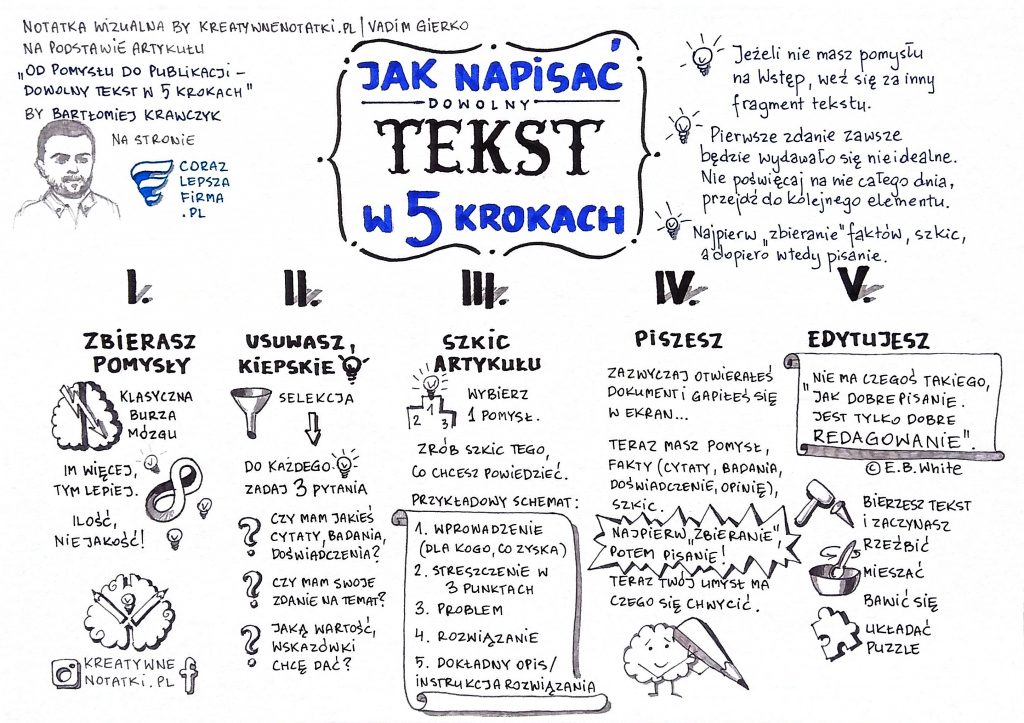 NOTATKA WIZUALNA BY KREATYWNENOTATKI.PL | VADIM GIERKO
NA PODSTAWIE ARTYKUŁU
„OD POMYSŁU DO PUBLIKACJI –
DOWOLNY TEKST W 5 KROKACH"
BY BARTŁOMIEJ KRAWCZYK
NA STRONIE
CORAZ
LEPSZA
FIRMA
.PL
JAK NAPISAĆ
DOWOLNY
TEKST
W 5 KROKACH
Jeżeli nie masz pomysłu
na Wstęp, weź się za inny
fragment tekstu.
Pierwsze zdanie zawsze
będzie wydawało się nieidealne.
Nie poświęcaj na nie całego dnia,
przejdź do kolejnego elementu.
Najpierw „zbieranie" faktów, szkic,
a dopiero wtedy pisanie.
I.
ZBIERASZ
POMYSŁY
KLASYCZNA
BURZA
MÓZGU
IM WIĘCEJ,
TYM LEPIEJ.
ILOŚĆ,
NIE JAKOŚĆ!
KREATYWNE
NOTATKI.PL
II.
USUWASZ,
KIEPSKIE
SELEKCJA
DO KAŻDEGO
ZADAJ 3 PYTANIA
? CZY MAM JAKIEŚ
CYTATY, BADANIA,
DOŚWIADCZENIA?
? CZY MAM SWOJE
ZDANIE NA TEMAT?
? JAKĄ WARTOŚĆ,
WSKAZÓWKI
CHCĘ DAĆ?
III.
SZKIC
ARTYKUŁU
1
2 3
WYBIERZ
1 POMYSŁ.
ZRÓB SZKIC TEGO,
CO CHCESZ POWIEDZIEĆ.
PRZYKŁADOWY SCHEMAT:
1. WPROWADZENIE
(DLA KOGO, CO ZYSKA)
2. STRESZCZENIE W
3 PUNKTACH
3. PROBLEM
4. ROZWIĄZANIE
5. DOKŁADNY OPIS/
INSTRUKCJA ROZWIĄZANIA
IV.
PISZESZ
ZAZWYCZAJ OTWIERAŁEŚ
DOKUMENT I GAPIŁEŚ SIĘ
W EKRAN...
TERAZ MASZ POMYSŁ,
FAKTY (CYTATY, BADANIA,
DOŚWIADCZENIE, OPINIĘ),
SZKIC.
NAJPIERW „ZBIERANIE",
POTEM PISANIE!
TERAZ TWÓJ UMYSŁ MA
CZEGO SIĘ CHWYCIĆ.
V.
EDYTUJESZ
„NIE MA CZEGOŚ TAKIEGO,
JAK DOBRE PISANIE.
JEST TYLKO DOBRE
REDAGOWANIE".
© E.B. White
BIERZESZ TEKST
I ZACZYNASZ
RZEŹBIĆ
MIESZAĆ
BAWIĆ SIĘ
UKŁADAĆ
PUZZLE